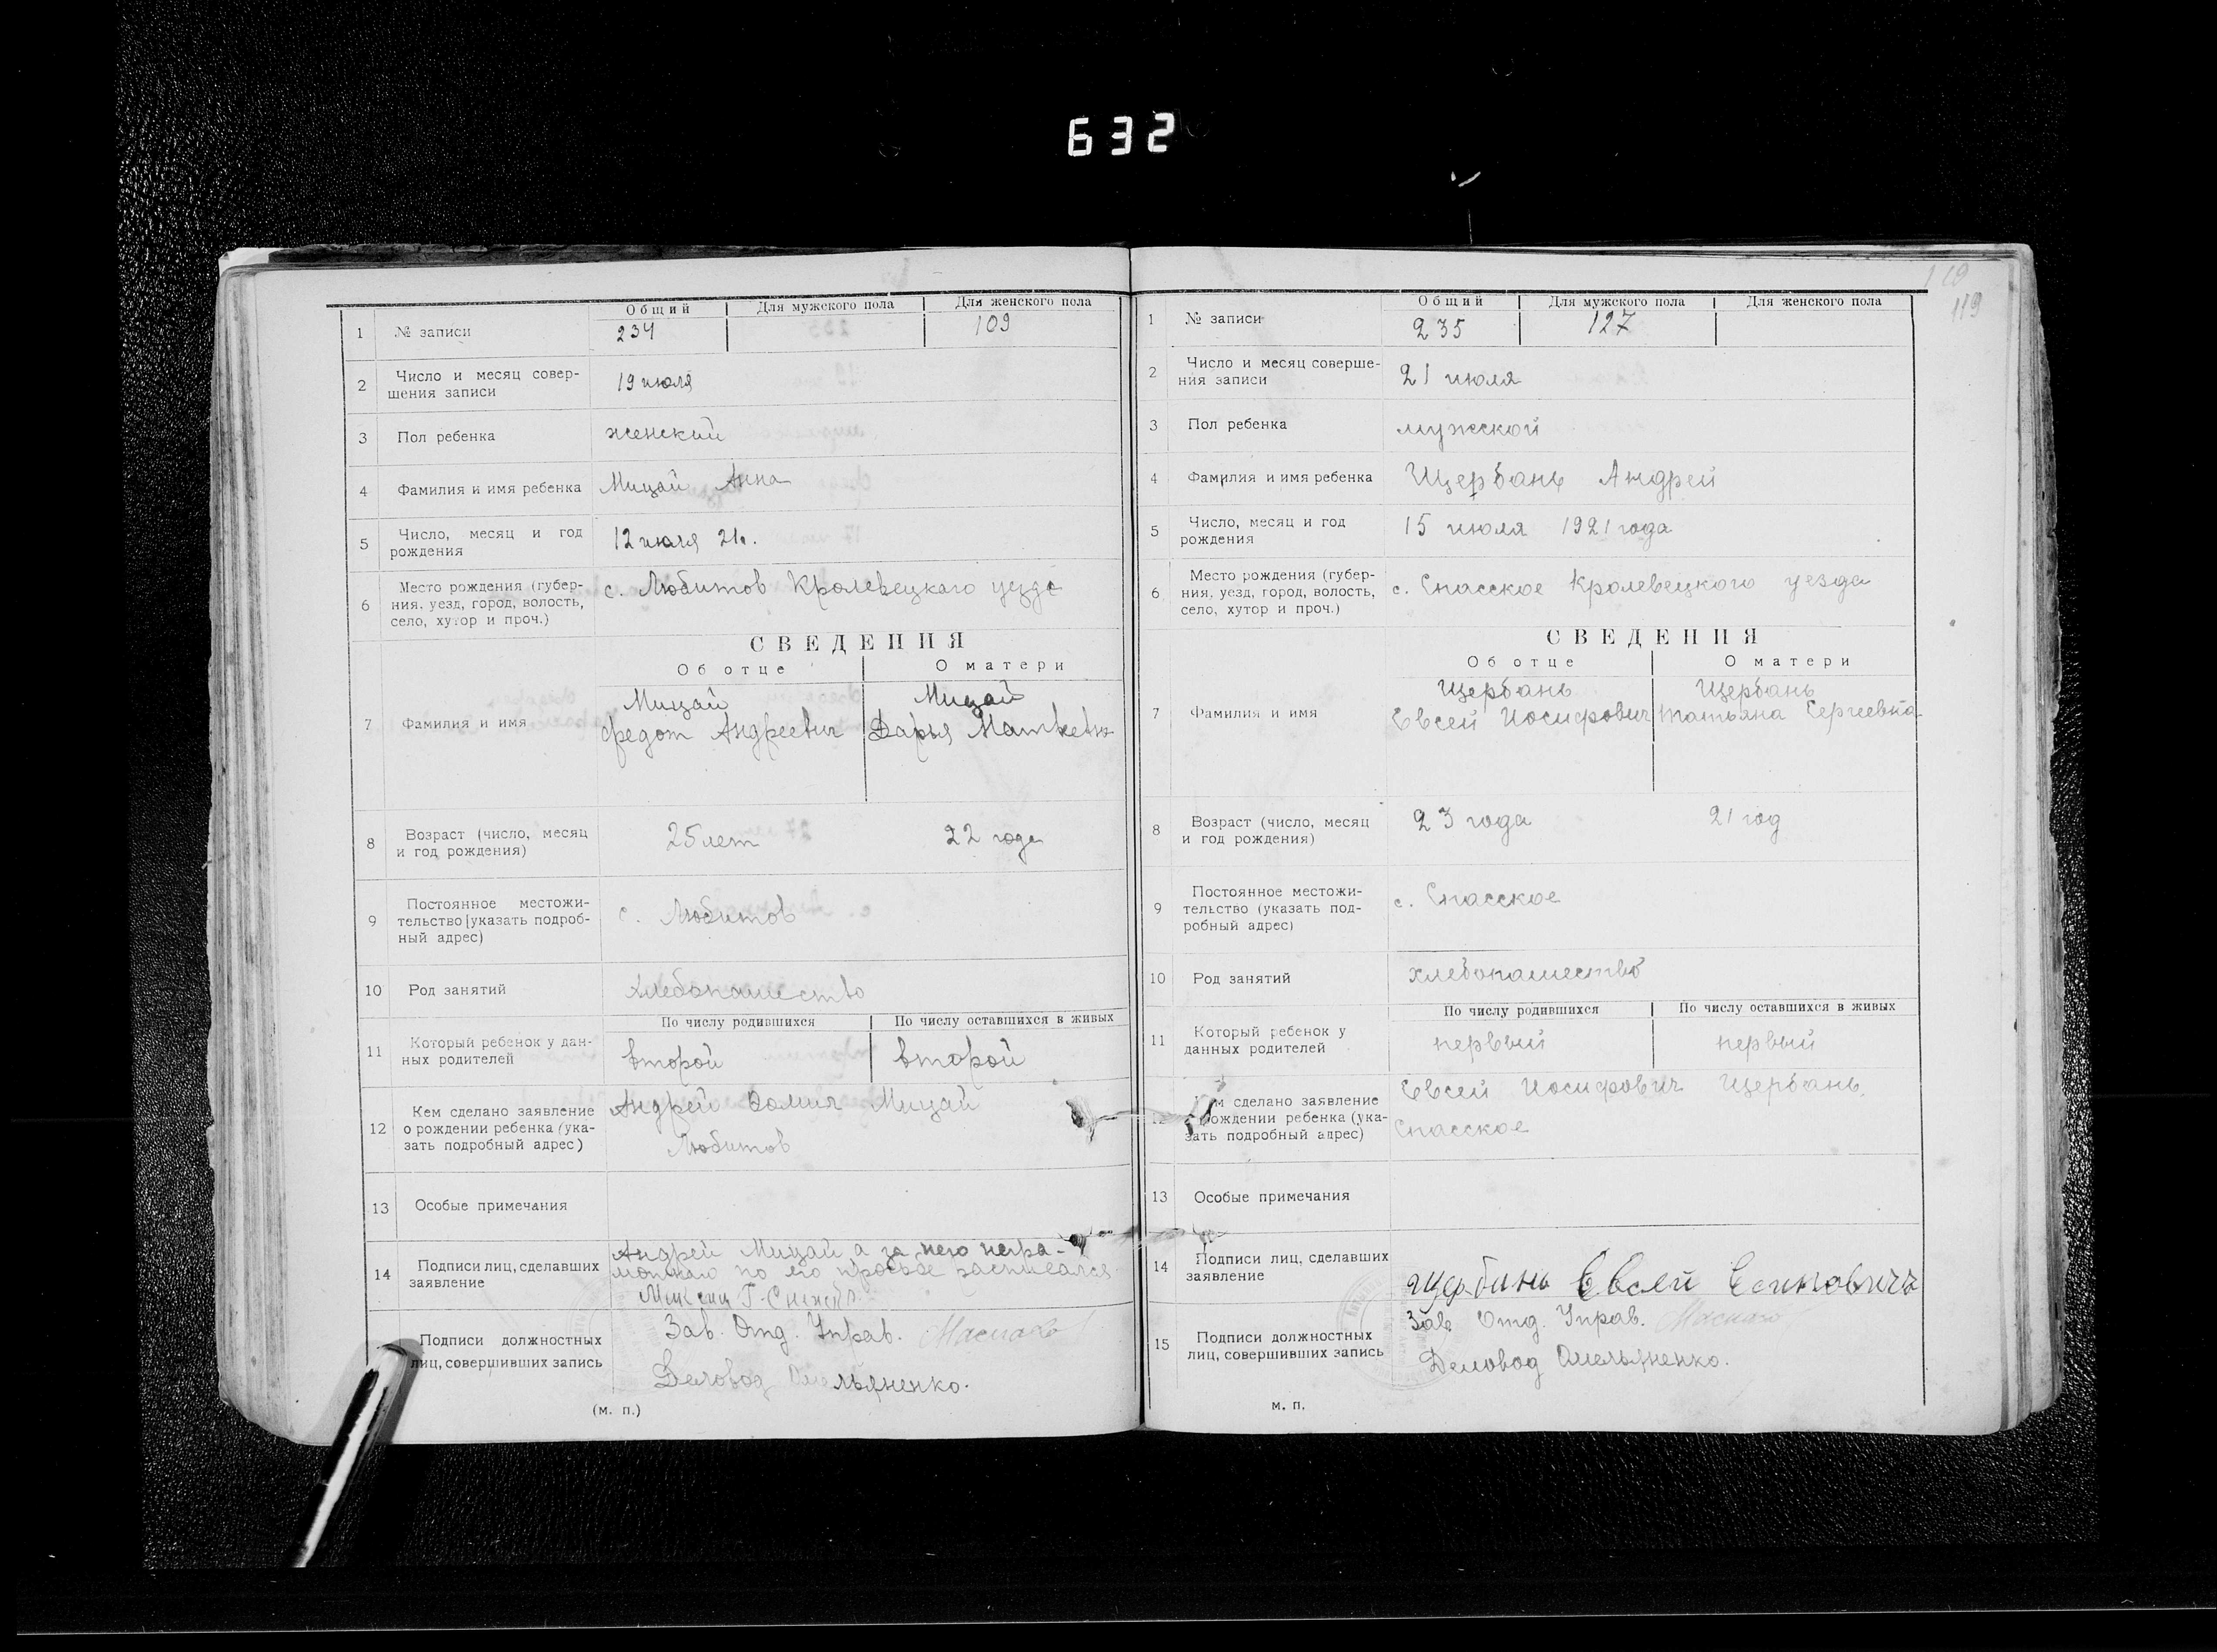 632
118
119
Общий Для мужского пола Для женского пола
1 № записи 234 109
2 Число и месяц совер-
шения записи 19 июля
3 Пол ребенка женский
4 Фамилия и имя ребенка Мицай Анна
5 Число, месяц и год
рождения 12 июля 21г.
6 Место рождения (губер-
ния, уезд, город, волость,
село, хутор и проч.) с. Любитов Кролевецкаго уезда
СВЕДЕНИЯ
Об отце О матери
7 Фамилия и имя
Мицай Мицай
Федот Андреевич Дарья Матвевна
8 Возраст (число, месяц
и год рождения) 25 лет 22 года
9 Постоянное местожи-
тельство [указать подроб-
ный адрес) с. Любитов
10 Род занятий хлебопашество
По числу родившихся По числу оставшихся в живых
11 Который ребенок у дан-
ных родителей второй второй
12 Кем сделано заявление
о рождении ребенка (ука-
зать подробный адрес)
Андрей Мицай
Любитов
13 Особые примечания
14 Подписи лиц, сделавших
заявление
Андрей Мицай а за него негра-
мотнаго по его просьбе расписался
Подписи должностных
лиц, совершивших запись
Зав. Отд. Управ.
Деловод Омельяненко.
(м. п.)
Общий Для мужского пола Для женского пола
1 № записи 235 127
2 Число и месяц соверше-
ния записи 21 июля
3 Пол ребенка мужской
4 Фамилия и имя ребенка Щербань Андрей
5 Число, месяц и год
рождения 15 июля 1921 года
6 Место рождения (губер-
ния, уезд, город, волость,
село, хутор и проч.) с. Спасское Кролевецкого уезда
СВЕДЕНИЯ
Об отце О матери
7 Фамилия и имя
Щербань Щербань
Евсей Иосифович Татьяна Сергеевна
8 Возраст (число, месяц
и год рождения) 23 года 21 год
9 Постоянное местожи-
тельство (указать под-
робный адрес) с. Спасское
10 Род занятий хлебопашество
По числу родившихся По числу оставшихся в живых
11 Который ребенок у
данных родителей первый первый
12 Кем сделано заявление
о рождении ребенка (ука-
зать подробный адрес)
Евсей Иосифович Щербань.
Спасское
13 Особые примечания
14 Подписи лиц, сделавших
заявление
Щербань Евсей
15 Подписи должностных
лиц, совершивших запись
Зав. Отд. Управ.
Деловод Омельяненко.
м. п.